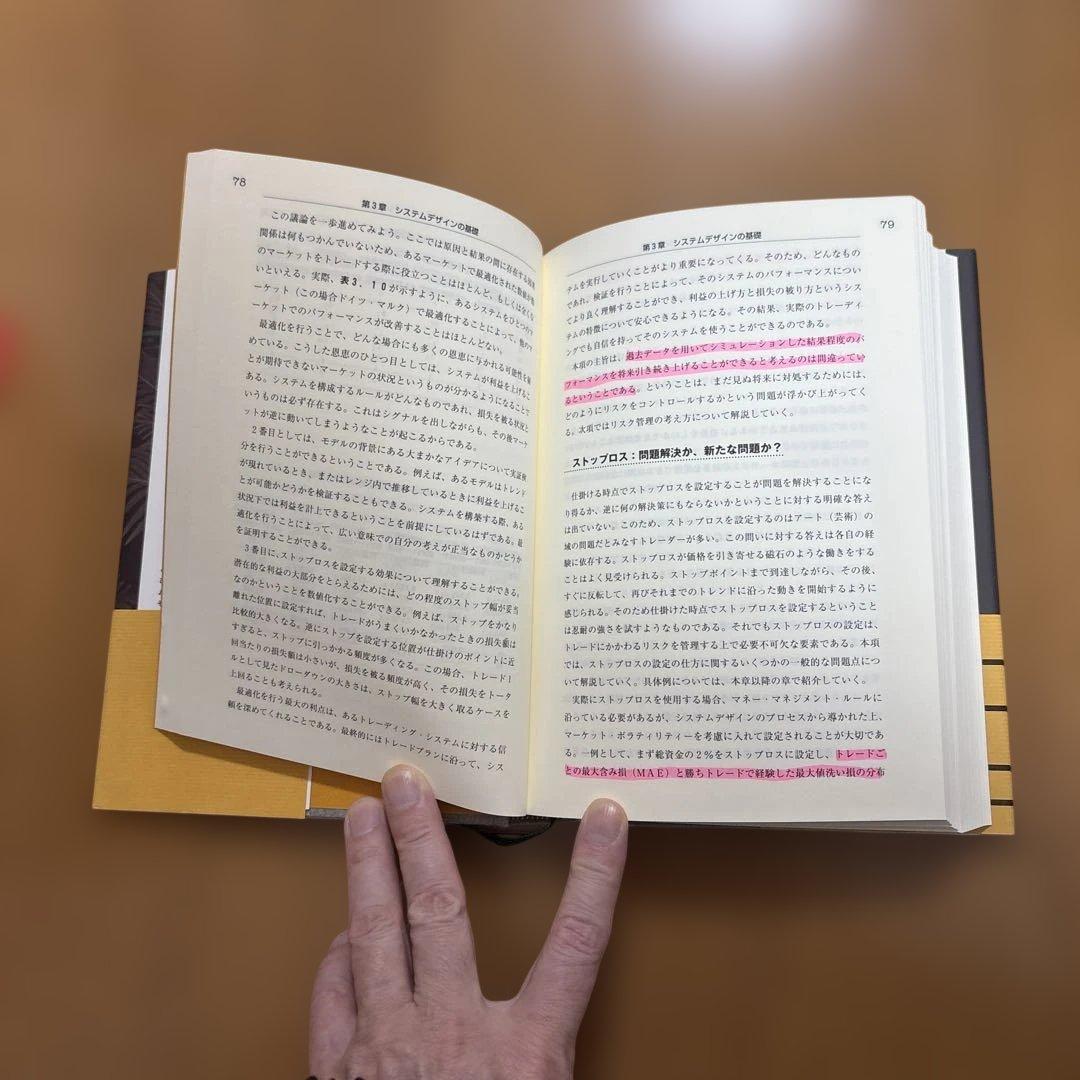 78
第3章 システムデザインの基礎
この議論を一歩進めてみよう。ここでは原因と結果の間に存在する
関係は何もつかんでいないため、あるマーケットで最適化された
のマーケットをトレードする際に役立つことはほとんど、もしくは全くな
いといえる。実際、表3.10が示すように、あるシステムをひとつのマ
ーケット(この場合ドイツ・マルク)で最適化することによって、他のマ
ーケットでのパフォーマンスが改善することはほとんどない。
最適化を行うことで、どんな場合にも多くの恩恵に与かれる可能性を
めている。こうした恩恵のひとつ目としては、システムが利益を上げるこ
とが期待できないマーケットの状況というものが分かるようになることで
ある。システムを構成するルールがどんなものであれ、損失を被る状況と
いうものは必ず存在する。これはシグナルを出しながらも、その後マーケ
ットが逆に動いてしまうようなことが起こるからである。
2番目としては、モデルの背景にある大まかなアイデアについて実証検
分を行うことができるということである。例えば、あるモデルはトレンド
が現れているとき、またはレンジ内で推移しているときに利益を上げるこ
とが可能かどうかを検証することもできる。システムを構築する際、ある
状況下では利益を計上できるということを前提にしているはずである。最
適化を行うことによって、広い意味での自分の考えが正当なものかどうか
を証明することができる。
3番目に、ストップを設定する効果について理解することができる。
潜在的な利益の大部分をとらえるためには、どの程度のストップ幅が妥当
なのかということを数値化することができる。例えば、ストップをかなり
離れた位置に設定すれば、トレードがうまくいかなかったときの損失額は
比較的大きくなる。逆にストップを設定する位置が仕掛けのポイントに近
すぎると、ストップに引っかかる頻度が多くなる。この場合、トレード1
回当たりの損失額は小さいが、損失を被る頻度が高く、その損失をトータ
ルとして見たドローダウンの大きさは、ストップ幅を大きく取るケースを
上回ることも考えられる。
最適化を行う最大の利点は、あるトレーディング・システムに対する信
頼を深めてくれることである。最終的にはトレードプランに沿って、シス
79
第3章 システムデザインの基礎
テムを実行していくことがより重要になってくる。そのため、どんなもの
であれ、検証を行うことによって、そのシステムのパフォーマンスについ
てより良く理解することができ、利益の上げ方と損失の被り方というシス
テムの特徴について安心できるようになる。その結果、実際のトレーディ
ングでも自信を持ってそのシステムを使うことができるのである。
本項の主旨は、過去データを用いてシミュレーションした結果程度のパ
フォーマンスを将来引き続き上げることができると考えるのは間違ってい
るということである。ということは、まだ見ぬ将来に対処するためには、
どのようにリスクをコントロールするかという問題が浮かび上がってく
る。次項ではリスク管理の考え方について解説していく。
ストップロス:問題解決か、新たな問題か?
仕掛ける時点でストップロスを設定することが問題を解決することにな
り得るか、逆に何の解決策にもならないかということに対する明確な答え
は出ていない。このため、ストップロスを設定するのはアート(芸術)の
域の問題だとみなすトレーダーが多い。この問いに対する答えは各自の経
験に依存する。ストップロスが価格を引き寄せる磁石のような働きをする
ことはよく見受けられる。ストップポイントまで到達しながら、その後、
すぐに反転して、再びそれまでのトレンドに沿った動きを開始するように
感じられる。そのため仕掛けた時点でストップロスを設定するということ
は忍耐の強さを試すようなものである。それでもストップロスの設定は、
トレードにかかわるリスクを管理する上で必要不可欠な要素である。本項
では、ストップロスの設定の仕方に関するいくつかの一般的な問題点につ
いて解説していく。具体例については、本章以降の章で紹介していく。
実際にストップロスを使用する場合、マネー・マネジメント・ルールに
沿っている必要があるが、システムデザインのプロセスから導かれた上、
マーケット・ボラティリティーを考慮に入れて設定されることが大切であ
る。一例として、まず総資金の2%をストップロスに設定し、トレードご
との最大含み損(MAE)と勝ちトレードで経験した最大値洗い損の分布